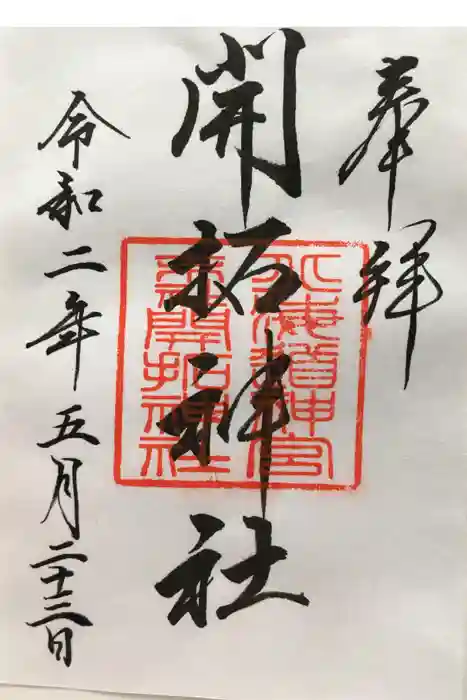 奉拝
開拓神社
北海道神宮
末開拓神社
令和二年五月二十三日